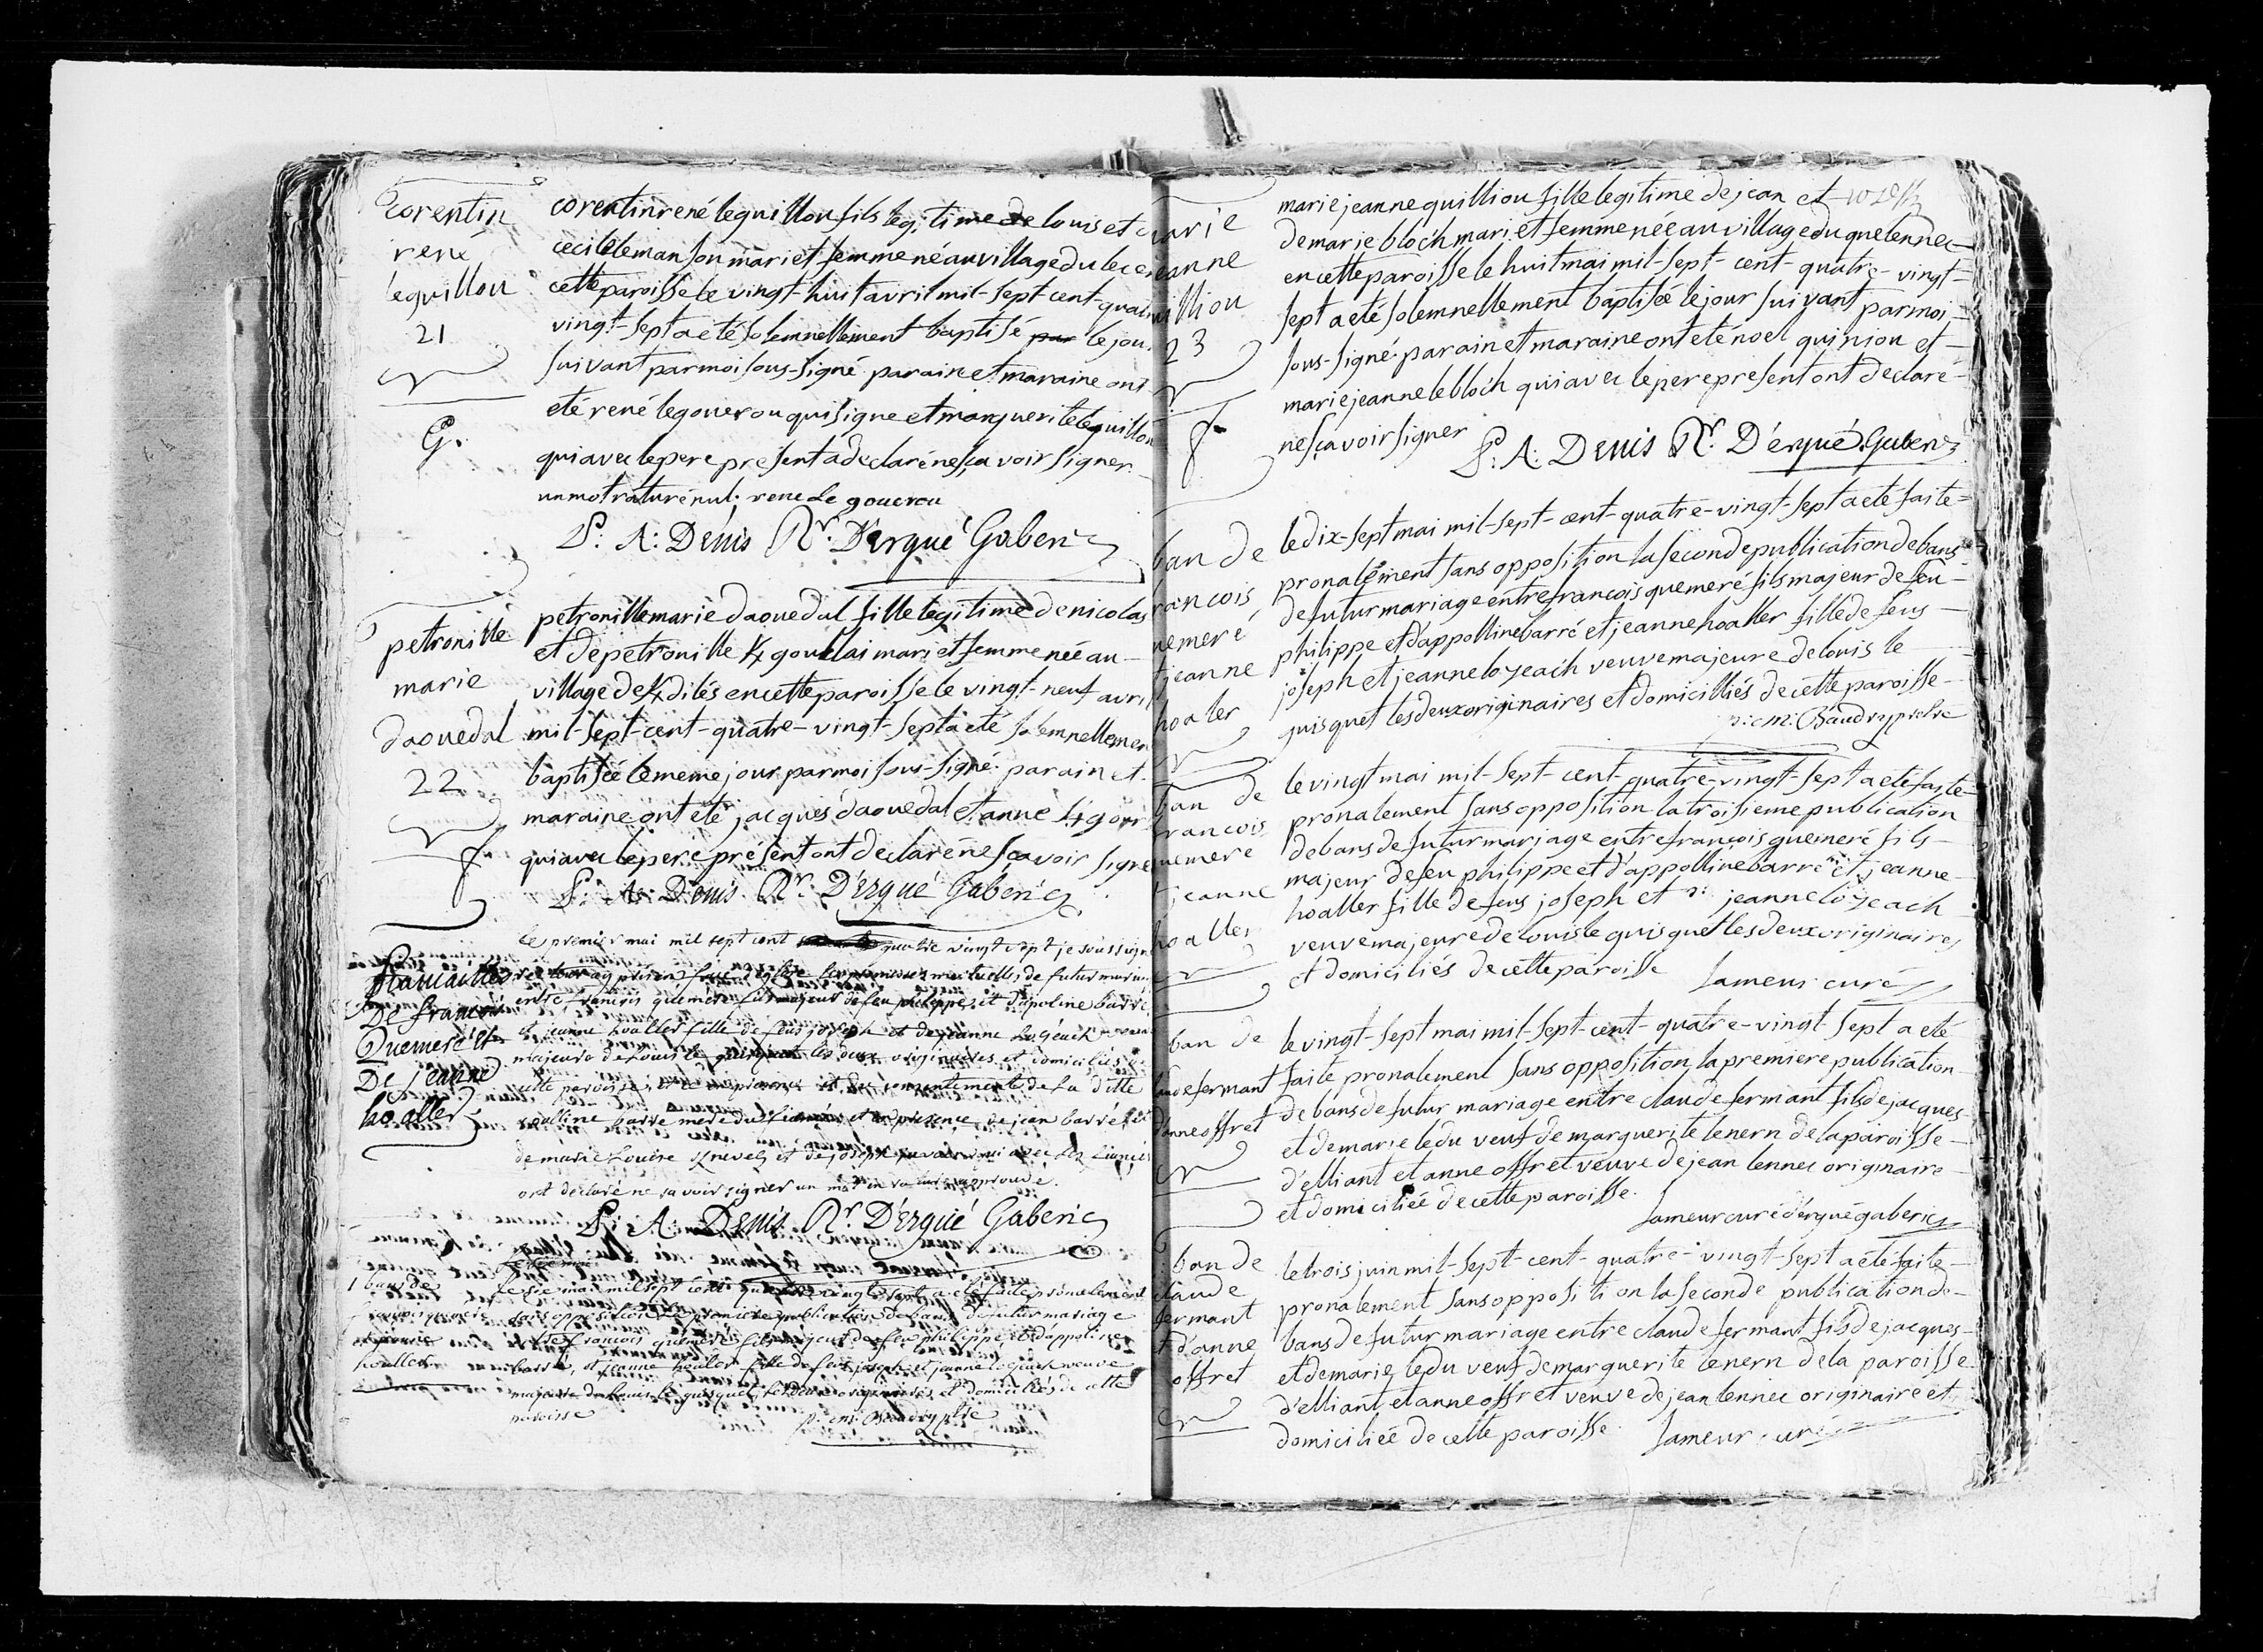 corentin
rené
leguillou
21
G.
corentin rené leguillou fils legitime de louis et
cecile le manson mari et femme né au village du lec
cette paroisse le vingt-huit avril mil-sept-cent-quat
vingt-sept a eté solemnellement baptisé par le jou
suivant par moi sous-signé parain et maraine ont
eté rené le gouerou qui signe et marguerite le guillou
qui avec le pere présent a declaré ne sçavoir signer.
un mot raturé nul. rene Le gouerou
P: A: Denis Rr. D'ergué Gaberic
petronille
marie
daouedal
22
petronille marie daouedal fille legitime de nicolas
et de petronille K/goulai mari et femme née au
village de K/dilés en cette paroisse le vingt-neuf avri
mil-sept-cent-quatre-vingt-sept a eté solemnellemen
baptisée le meme jour par moi sous-signé. parain et
maraine ont eté jacques daouedal et anne K/gou
qui avec le pere présent ont declaré ne sçavoir signe
P: A: Denis Rr. D'ergué Gaberic
fiancailles
De francois
Quemeré et
De jeanne
hoaller
le premier mai mil sept cent quatre vingt sept je soussigné
entre francois quemeré fils majeur de feu philippe, et d'apoline barré
et jeanne hoaller fille de feus joseph et de jeanne lozeach
majeure de louis le quisquet les deux originaires et domiciliés
cette paroisse du consentement de la ditte
barré mere du et en presence de jean barré
de marie et de joseph qui avec les fiancés
ont declaré ne savoir signer un mot approuvé.
P: A: Denis Rr. D'ergué Gaberic
1 bans de
francois quemeré
et jeanne
hoaller
le six mai mil sept cent quatre vingt sept a eté faite prônalement
sans opposition la premiere publication de bans de futur mariage
entre francois quemeré fils majeur de feu philippe et d'appoline
barré, et jeanne hoaler fille de feus joseph et jeanne lozeach veuve
majeure de louis le quisquet, les deux originaires et domiciliés de cette
paroisse
arie
eanne
uilliou
23
f
marie jeanne quilliou fille legitime de jean et
de marie bloc'h mari et femme née au village du quelennec
en cette paroisse le huit mai mil-sept-cent-quatre-vingt-
sept a eté solemnellement baptisée le jour suivant par moi
sous-signé. parain et maraine ont eté noel quiniou et
marie jeanne le bloc'h qui avec le pere present ont declaré
ne sçavoir signer P: A: Denis Rr. D'ergué Gaberic
ban de
rancois
uemeré
t jeanne
hoaler
le dix-sept mai mil-sept-cent-quatre-vingt-sept a eté faite
pronalement sans opposition la seconde publication de bans
de futur mariage entre francois quemeré fils majeur de feu
philippe et d'appolline barré et jeanne hoaller fille de feus
joseph et jeanne lozeach veuve majeure de louis le
quisquet les deux originaires et domiciliés de cette paroisse
ban de
rancois
uemeré
t jeanne
hoaller
le vingt mai mil-sept-cent-quatre-vingt-sept a eté faite
pronalement sans opposition la troisieme publication
de bans de futur mariage entre francois quemeré fils
majeur de feu philippe et d'appolline barré et jeanne
hoaller fille de feus joseph et jeanne lozeach
veuve majeure de louis le quisquet les deux originaires
et domiciliés de cette paroisse Lameur curé
ban de
aude fermant
d'anne offret
le vingt-sept mai mil-sept-cent-quatre-vingt sept a eté
faite pronalement sans opposition la premiere publication
de bans de futur mariage entre claude fermant fils de jacques
et de marie ledu veuf de marguerite lenern de la paroisse
d'elliant et anne offret veuve de jean lennec originaire
et domiciliée de cette paroisse. Lameur curé d'ergué gaberic
ban de
claude
fermant
t d'anne
offret
le trois juin mil-sept-cent-quatre-vingt-sept a eté faite
pronalement sans opposition la seconde publication de
bans de futur mariage entre claude fermant fils de jacques
et de marie ledu veuf de marguerite lenern de la paroisse
d'elliant et anne offret veuve de jean lennec originaire et
domiciliée de cette paroisse Lameur curé